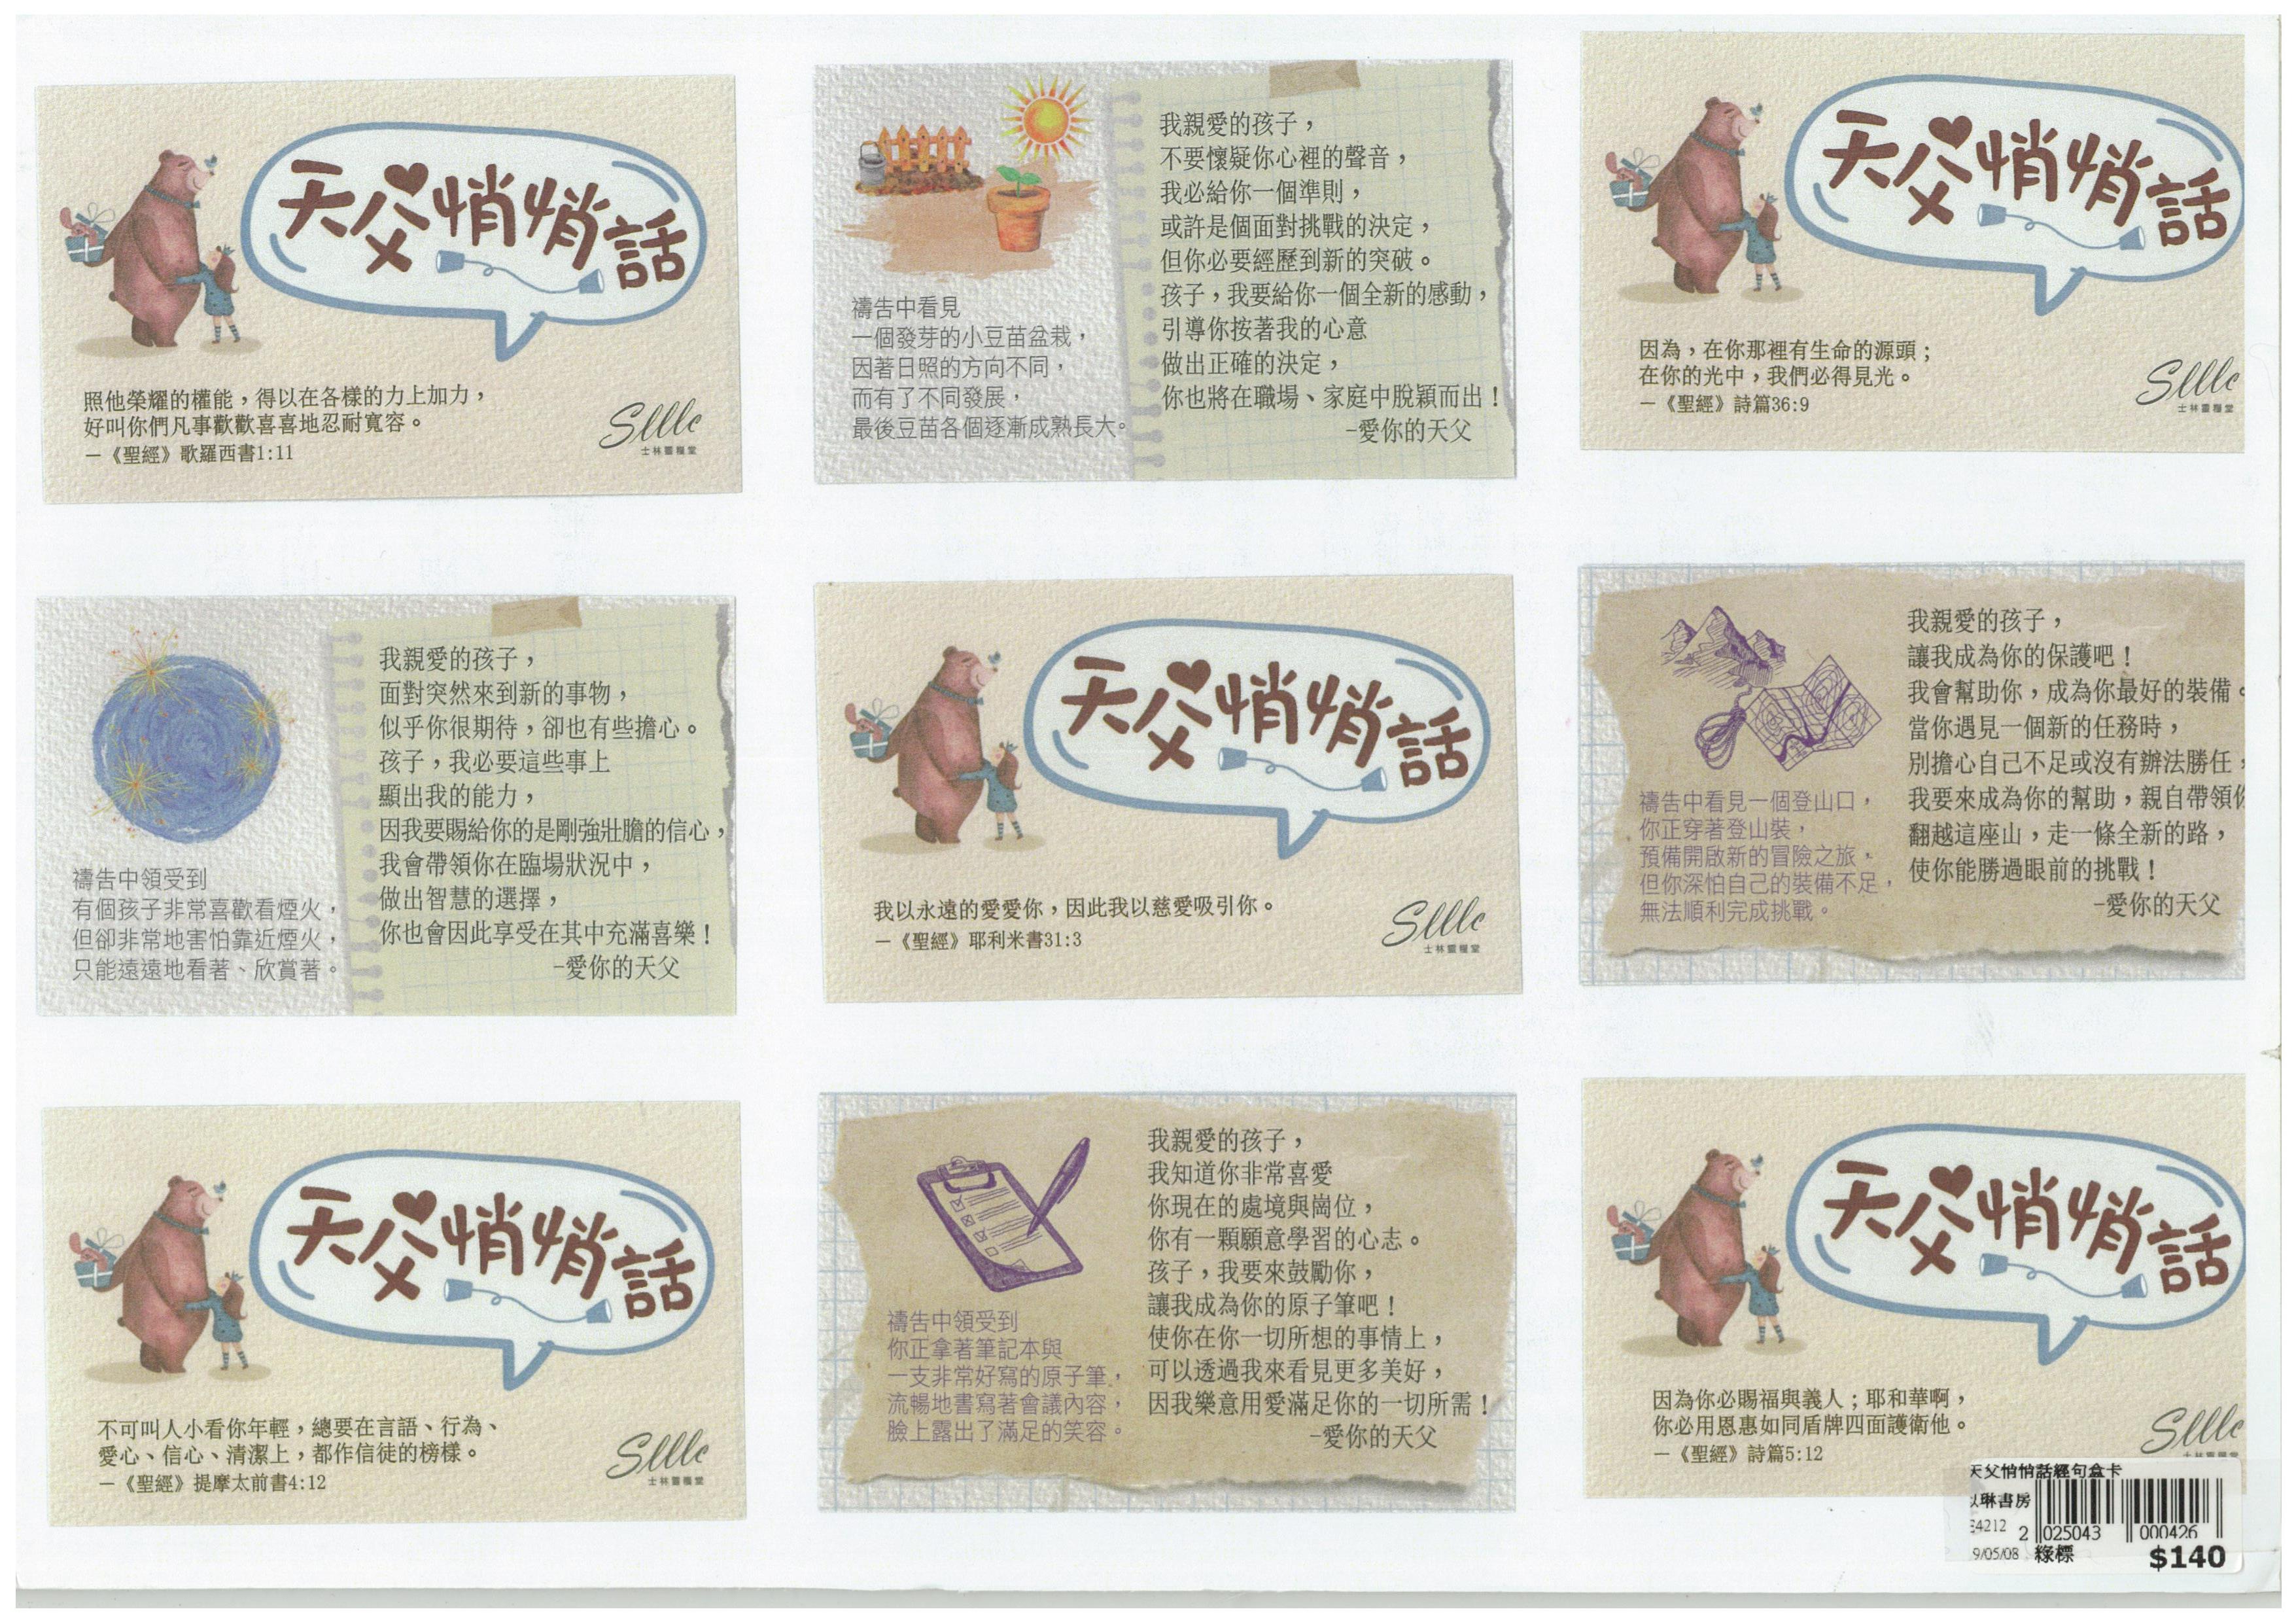 天父悄悄話
照他榮耀的權能，得以在各樣的力上加力，
好叫你們凡事歡歡喜喜地忍耐寬容。
－《聖經》歌羅西書1:11
Sllllc
士林靈糧堂
禱告中看見
一個發芽的小豆苗盆栽，
因著日照的方向不同，
而有了不同發展，
最後豆苗各個逐漸成熟長大。
我親愛的孩子，
不要懷疑你心裡的聲音，
我必給你一個準則，
或許是個面對挑戰的決定，
但你必要經歷到新的突破。
孩子，我要給你一個全新的感動，
引導你按著我的心意
做出正確的決定，
你也將在職場、家庭中脫穎而出！
-愛你的天父
天父悄悄話
因為，在你那裡有生命的源頭；
在你的光中，我們必得見光。
－《聖經》詩篇36:9
Sllllc
士林靈糧堂
禱告中領受到
有個孩子非常喜歡看煙火，
但卻非常地害怕靠近煙火，
只能遠遠地看著、欣賞著。
我親愛的孩子，
面對突然來到新的事物，
似乎你很期待，卻也有些擔心。
孩子，我必要這些事上
顯出我的能力，
因我要賜給你的是剛強壯膽的信心，
我會帶領你在臨場狀況中，
做出智慧的選擇，
你也會因此享受在其中充滿喜樂！
-愛你的天父
天父悄悄話
我以永遠的愛愛你，因此我以慈愛吸引你。
－《聖經》耶利米書31:3
Sllllc
士林靈糧堂
禱告中看見一個登山口，
你正穿著登山裝，
預備開啟新的冒險之旅，
但你深怕自己的裝備不足，
無法順利完成挑戰。
我親愛的孩子，
讓我成為你的保護吧！
我會幫助你，成為你最好的裝備。
當你遇見一個新的任務時，
別擔心自己不足或沒有辦法勝任，
我要來成為你的幫助，親自帶領你
翻越這座山，走一條全新的路，
使你能勝過眼前的挑戰！
-愛你的天父
天父悄悄話
不可叫人小看你年輕，總要在言語、行為、
愛心、信心、清潔上，都作信徒的榜樣。
－《聖經》提摩太前書4:12
Sllllc
士林靈糧堂
禱告中領受到
你正拿著筆記本與
一支非常好寫的原子筆，
流暢地書寫著會議內容，
臉上露出了滿足的笑容。
我親愛的孩子，
我知道你非常喜愛
你現在的處境與崗位，
你有一顆願意學習的心志。
孩子，我要來鼓勵你，
讓我成為你的原子筆吧！
使你在你一切所想的事情上，
可以透過我來看見更多美好，
因我樂意用愛滿足你的一切所需！
-愛你的天父
天父悄悄話
因為你必賜福與義人；耶和華啊，
你必用恩惠如同盾牌四面護衛他。
－《聖經》詩篇5:12
Sllllc
天父悄悄話經句盒卡
琳書房
4212
2 025043 000426
9/05/08 綠標 $140